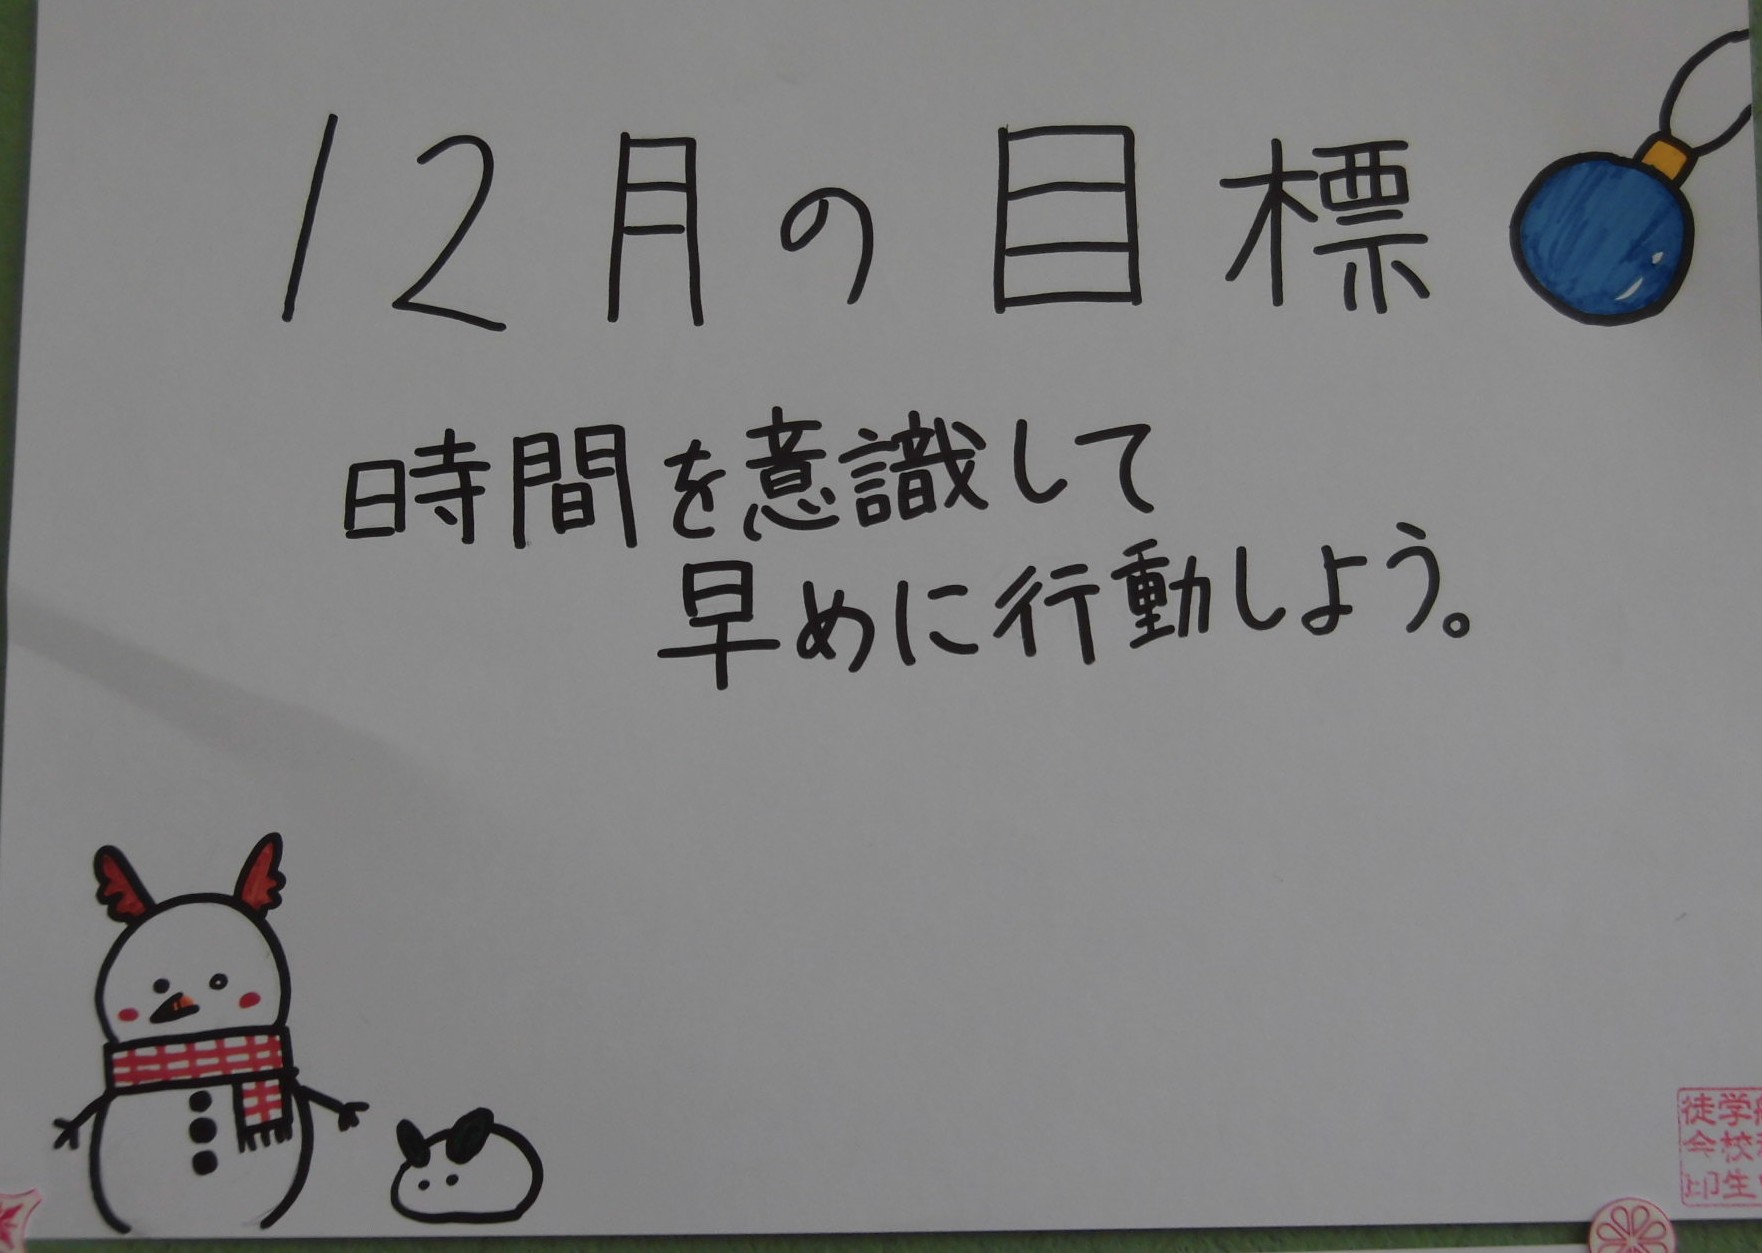 12月の目標
時間を意識して
早めに行動しよう。
徒学
会校
印生